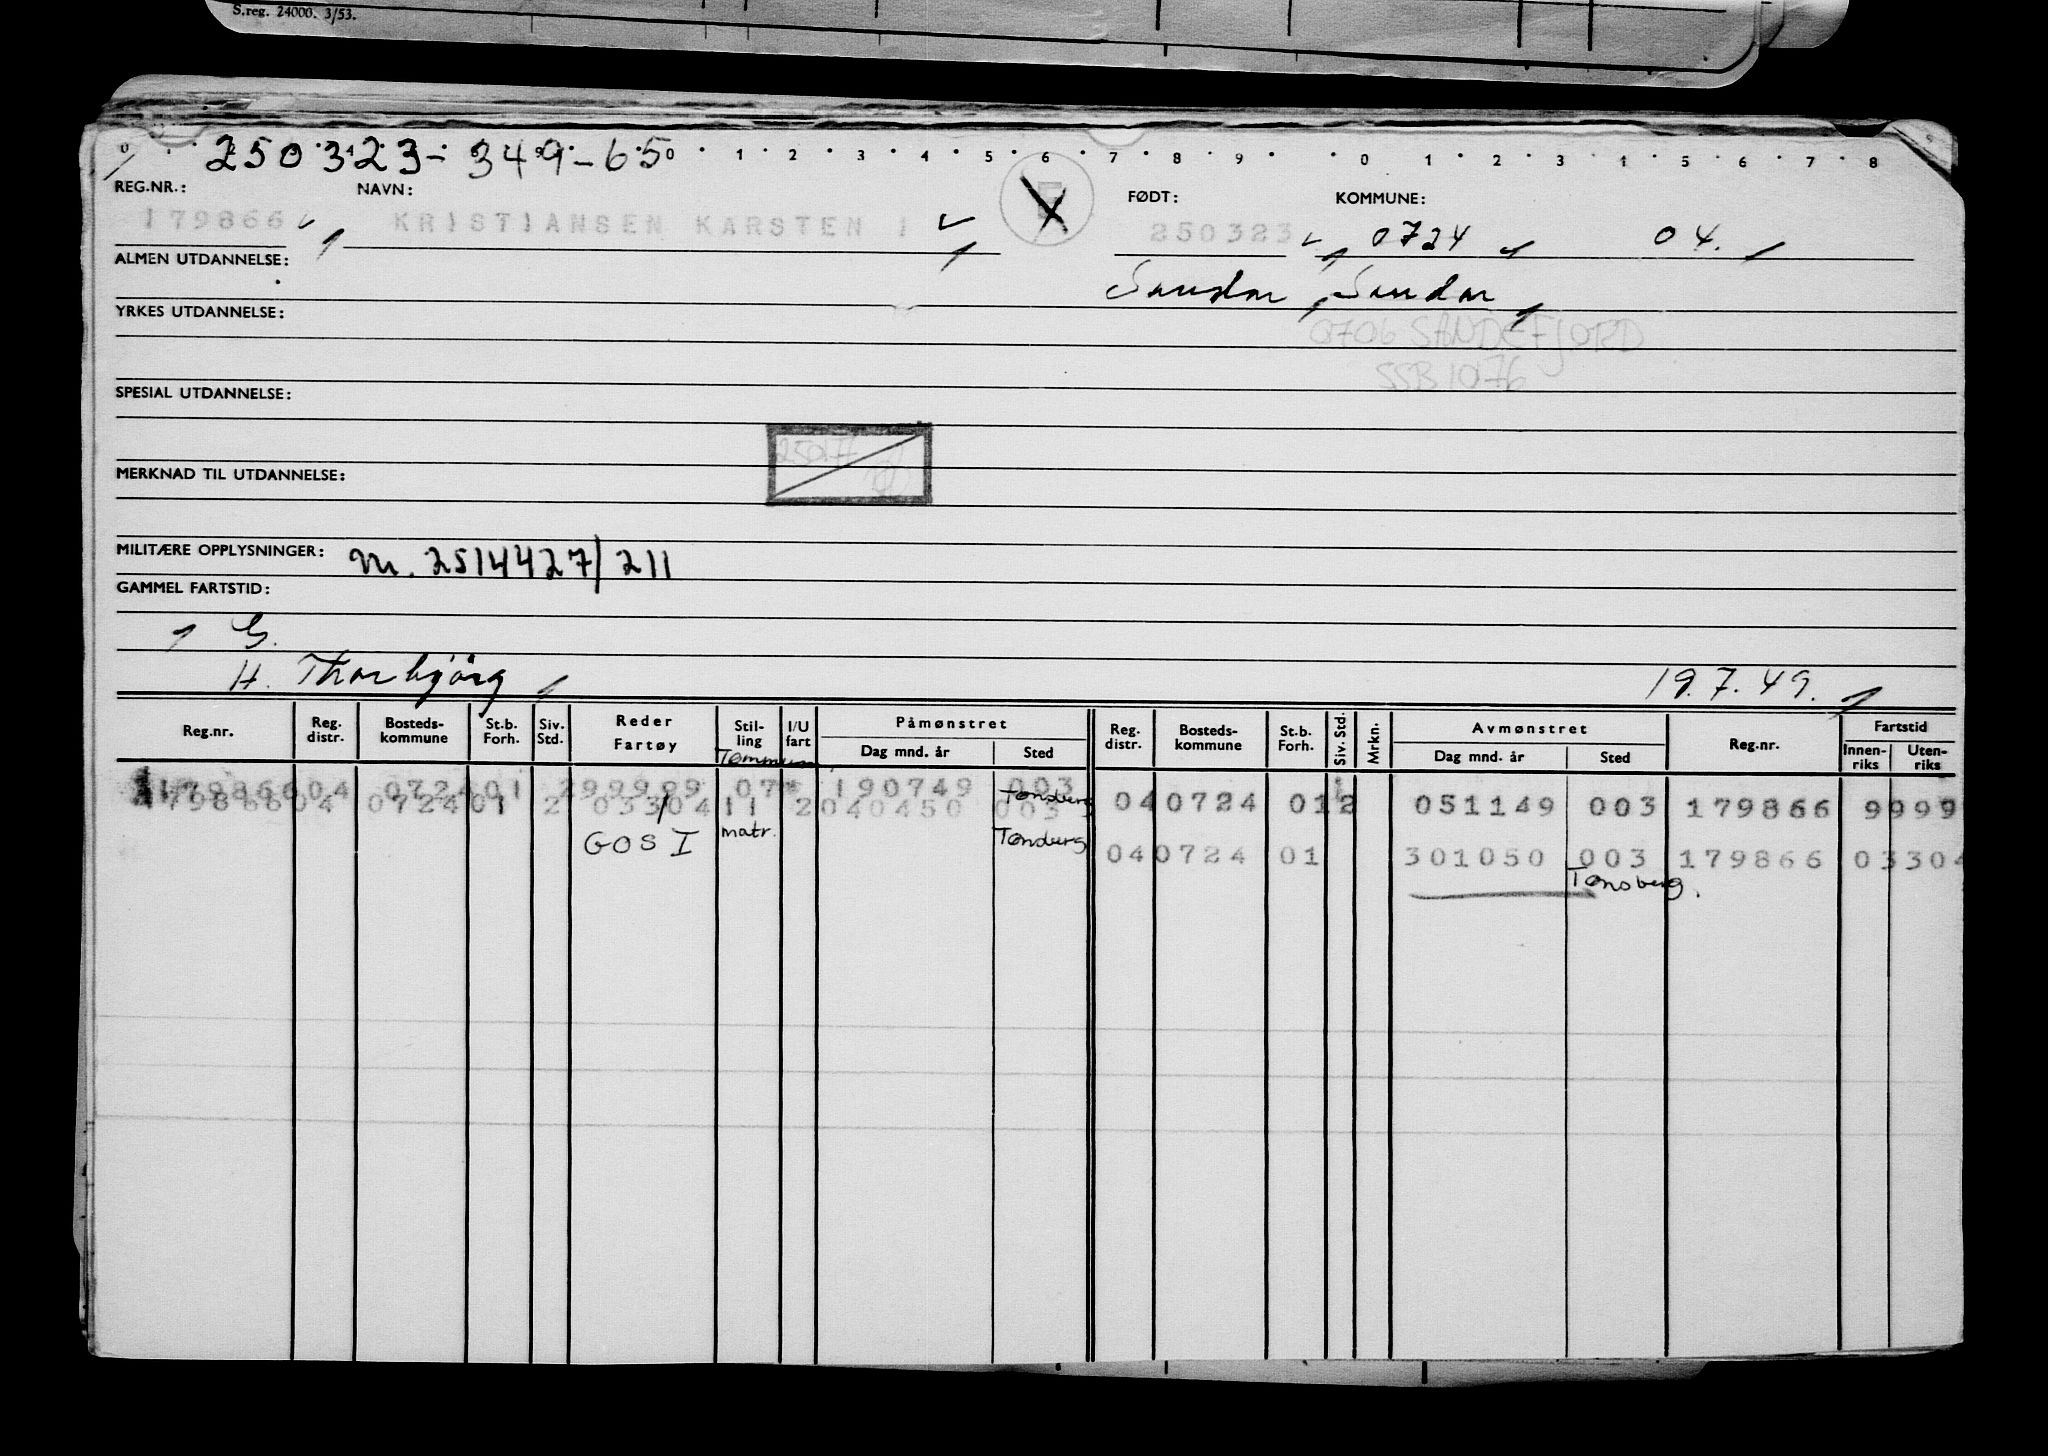 S.reg. 24000. 3/53.
250323-349-65
0 1 2 3 4 5 6 7 8 9 0 1 2 3 4 5 6 7 8
REG.NR.: NAVN: FØDT: KOMMUNE:
179866 KRISTIANSEN KARSTEN I 250323 0724 04.
ALMEN UTDANNELSE:
Sandar Sandar
YRKES UTDANNELSE:
0706 SANDEFJORD
SSB 1076
SPESIAL UTDANNELSE:
MERKNAD TIL UTDANNELSE:
MILITÆRE OPPLYSNINGER: M. 2514427/211
GAMMEL FARTSTID:
G.
H. Thorbjörg 19.7.49.
Reg.nr. Reg. distr. Bosteds-kommune St.b. Forh. Siv. Std. Reder Fartøy Stil-ling I/U fart Påmønstret Dag mnd. år Sted Reg. distr. Bosteds-kommune St.b. Forh. Siv. Std. Mrkn. Avmønstret Dag mnd. år Sted Reg.nr. Fartstid Innen-riks Uten-riks
179866 04 0724 01 299999 07 190749 003 Tønsberg 04 0724 01 2 051149 003 179866 9999
179866 04 0724 01 2 033041 11 2 040450 003
GOS I matr. Tønsberg 04 0724 01 301050 003 179866 03304
Tønsberg.